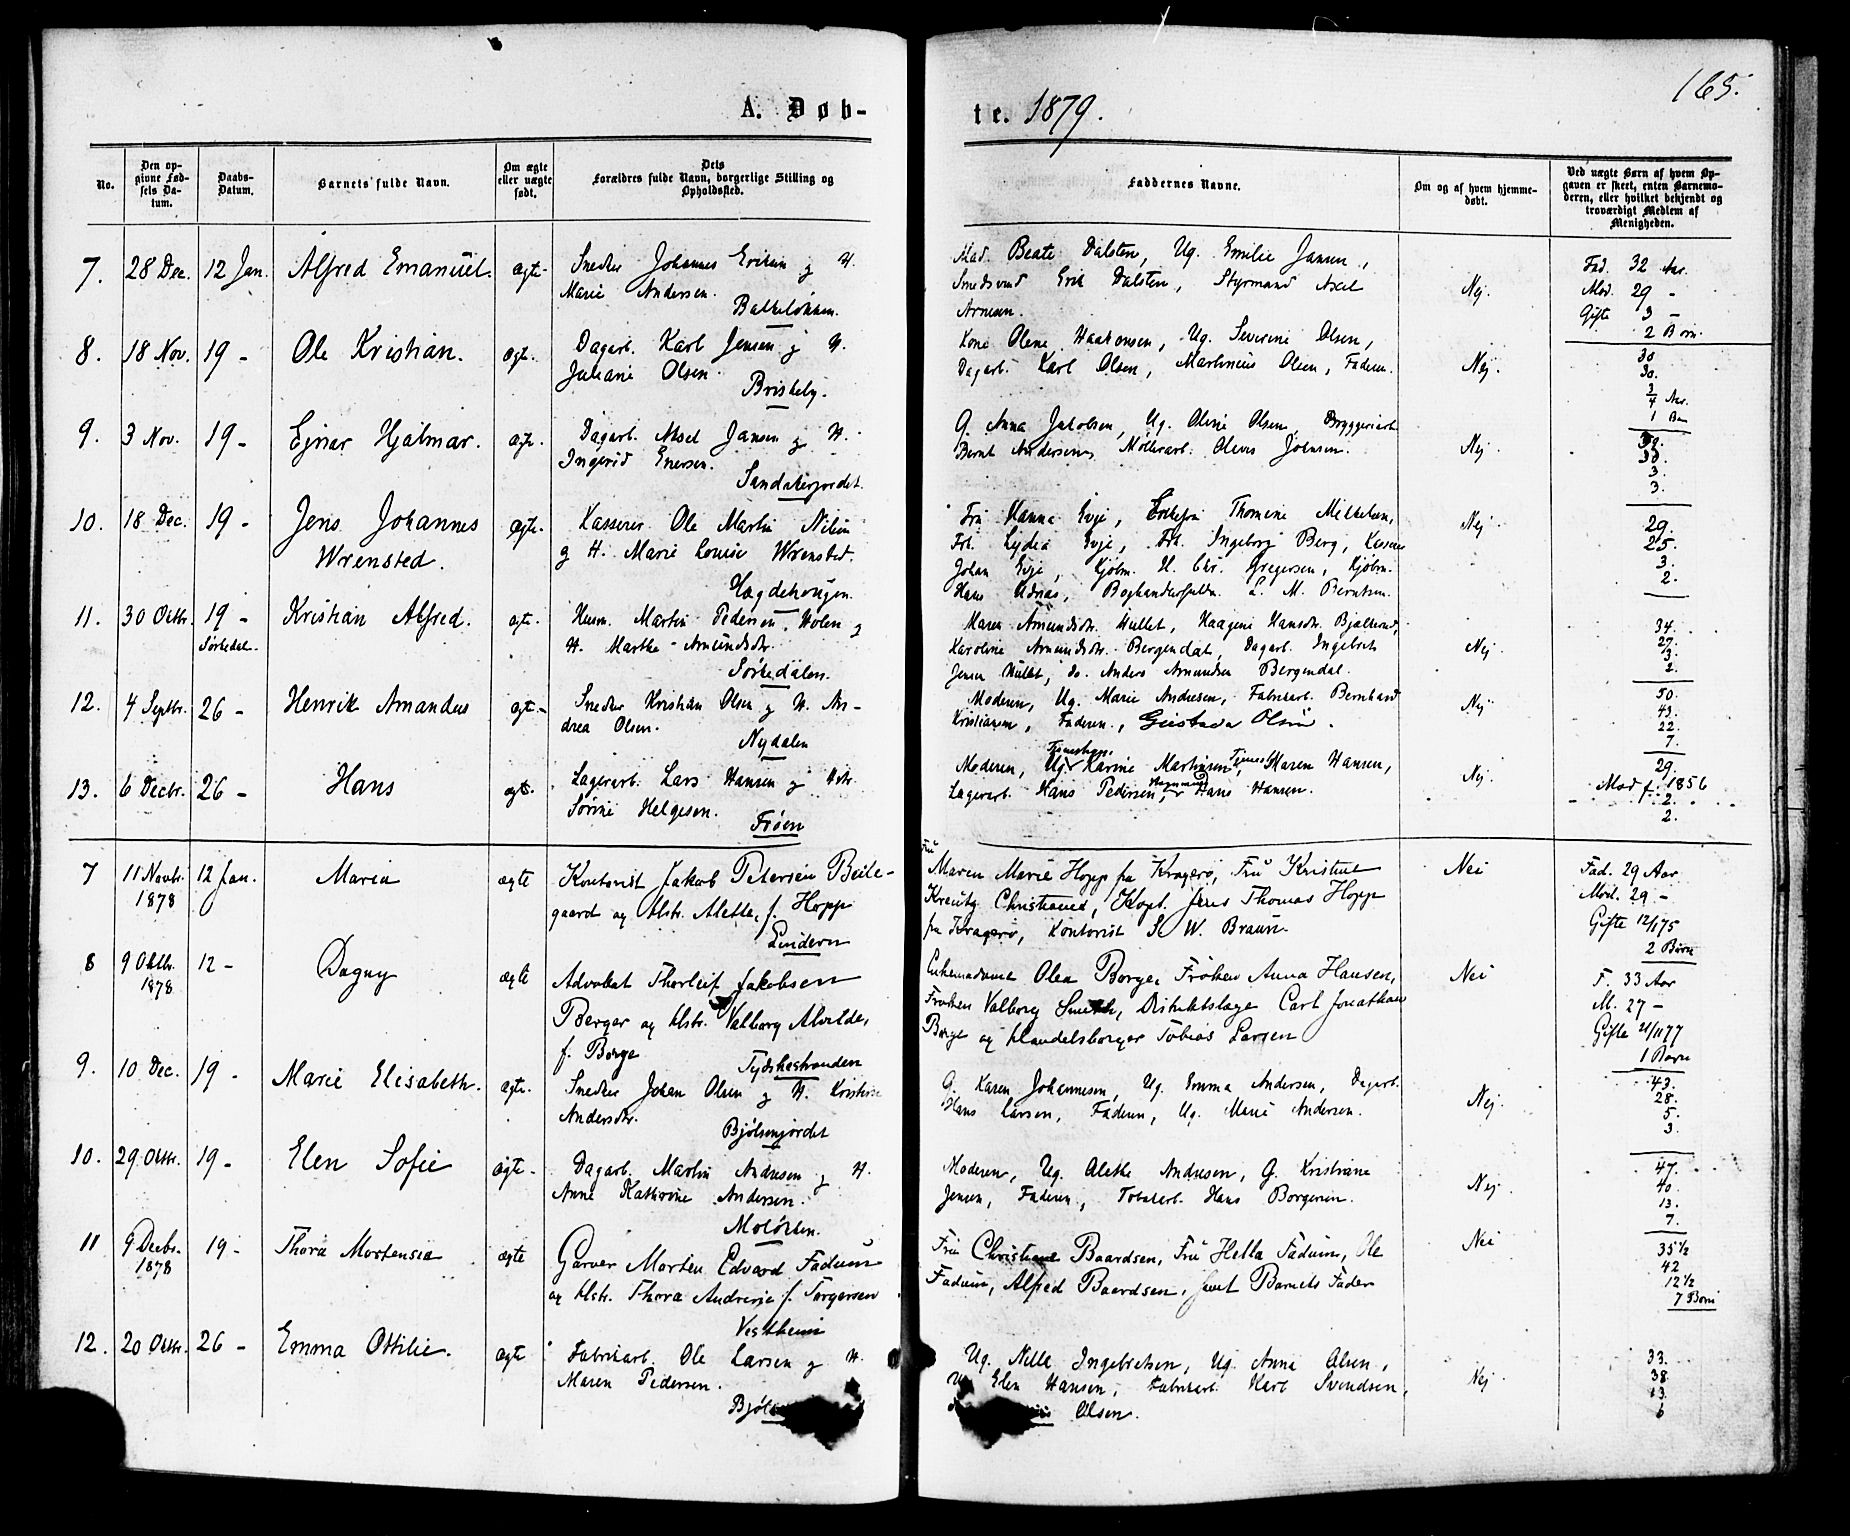 165.
A. Døb-
te. 1879.
No.
Den op-
givne Fød-
sels Da-
tum.
Daabs-
Datum.
Barnets fulde Navn.
Om ægte
eller uægte
født.
Dets
Forældres fulde Navn, borgerlige Stilling og
Opholdssted.
Faddernes Navne.
Om og af hvem hjemme-
døbt.
Ved uægte Børn af hvem Op-
gaven er skeet, enten Barnemo-
deren, eller hvilket bekjendt og
troværdigt Medlem af
Menigheden.
7. 28 Dec. 12 Jan. Alfred Emanuel. ægte. Snedker Johannes Eriksen og H.
Marie Andersen.
Balkeløkken.
Mad. Beate Dalsten, Ug. Emilie Jansen,
Smedsvend Erik Dalsten, Styrmand Axel
Arnesen.
Nej.
Fad. 32 Aar.
Mod. 29 -
Gifte 3 -
2 Børn.
8. 18 Nov. 19 - Ole Kristian. ægte. Dagarb. Karl Jensen og H.
Juliane Olsen.
Briskeby.
Kone Olene Haakonsen, Ug. Severine Olsen,
Dagarb. Karl Olsen, Martinius Olsen, Faderen.
Nej.
30
30.
3/4 Aar.
1 Barn
9. 3 Nov. 19 - Ejnar Hjalmar. ægte. Dagarb. Axel Jansen og H.
Ingerid Enersen.
Sandakerjordet.
G. Anna Jakobsen, Ug. Oline Olsen, Bryggeriarb.
Bernt Andersen, Møllerarb. Johnsen.
Nej.
38.
3.
3.
10. 18 Dec. 19 - Jens Johannes
Wrensted.
ægte. Kasserer Ole Martin Nilsen
og H. Marie Louise Wrensted.
Hægdehougen.
Fru Hanna Evje, Enkefru Thomine Mikkelsen,
Frk. Lydia Evje, Frk. Ingeborg Berg, Kasserer
Johan Evje, Kjøbm. H. Chr. Gregersen, Kjøbm.
Hans L. M. Berntsen.
Nej.
29.
25.
3.
2.
11. 30 Octbr. 19 -
Sørkedal.
Kristian Alfred. ægte. Husm. Martin Pedersen Holen og
H. Marthe Amundsdtr.
Sørkedalen.
Maren Amundsdtr. Hullet, Haagine Hansdtr.
Karoline Amundsdtr. Bergendal, Dagarb. Ingebret
Jensen Hullet, do. Anders Amundsen Bergendal.
Nej.
34.
27.
3.
2.
12. 4 Septbr. 26 - Henrik Amandus ægte. Snedker Kristian Olsen og H. An-
drea Olsen.
Nydalen
Moderen, Ug. Marie Andresen, Fabrikarb. Bernhard
Kristiansen, Faderen, Gustava Olsen.
Nej.
50.
43.
22.
7.
13. 6 Decbr. 26 - Hans ægte. Lagerarb. Lars Hansen og Hstr.
Sørine Helgesen.
Frøen
Moderen, Karine Martinsen, Maren Hansen,
Lagerarb. Hans Pedersen, Hans Hansen.
Nej.
29.
Mod f. 1856
2.
2.
7 11 Novbr.
1878
12 Jan. Maria ægte Kontorist Jakob Petersen Beile-
gaard og Hstr. Alette, f. Hopp
Lindern
Fru
Maren Marie Hopp fra Kragerø, Fru Kristine
Christiansd, Kapt. Jens Thomas Hopp
fra Kragerø, Kontorist W. Braun
Nei
Fad. 29 Aar
Mod. 29 -
Gifte 12/1 75
2 Børn
8 9 Oktbr.
1878
12 - Dagny ægte Advokat Thorleif Jakobsen
Berger og Hstr. Valborg Alvilde,
f. Borge
Tydskestranden
Enkemadame Olea Borge, Frøken Anna Hansen,
Frøken Valborg Smith, Distriktslæge Carl Jonathan
Borge og Handelsborger Tobias Larsen
Nei
F. 33 Aar
M. 27 -
Gifte 21/11 77
1 Barn
9. 10 Dec. 19 - Marie Elisabeth. ægte. Snedker Johan Olsen og H. Kristine
Andersdtr.
Bjølsenjordet
G. Karen Johannesen, Ug. Emma Andersen, Dagarb.
Hans Larsen, Faderen, Ug. Marie Andersen.
Nej.
43.
28.
5.
3.
10. 29 Oktbr. 19 - Elen Sofie ægte. Dagarb. Martin Andresen og H.
Anne Kathrine Andersen.
Moløkken.
Moderen, Ug. Alethe Andresen, G. Kristiane
Jensen, Faderen, Tobakarb. Hans Borgersen.
Nej.
47.
40.
13.
7.
11 9 Decbr.
1878
19 - Thora Mortensia ægte Garver Morten Edvard Fadum
og Hstr. Thora Andresje f. Torgersen
Vestheim
Fru Christiane Baardsen, Fru Hella Fadum, Ole
Fadum, Alfred Baardsen, samt Barnets Fader
Nei
35 1/2
42
12 1/2
7 Børn
12. 20 Oktbr. 26 - Emma Ottilie. ægte Fabrikarb. Ole Larsen og H.
Maren Pedersen.
Ug. Nille Ingebretsen, Ug. Anna Olsen,
Ug. Elen Hansen, Fabrikarb. Karl Svendsen,
Olsen.
Nej
33.
38.
13.
6